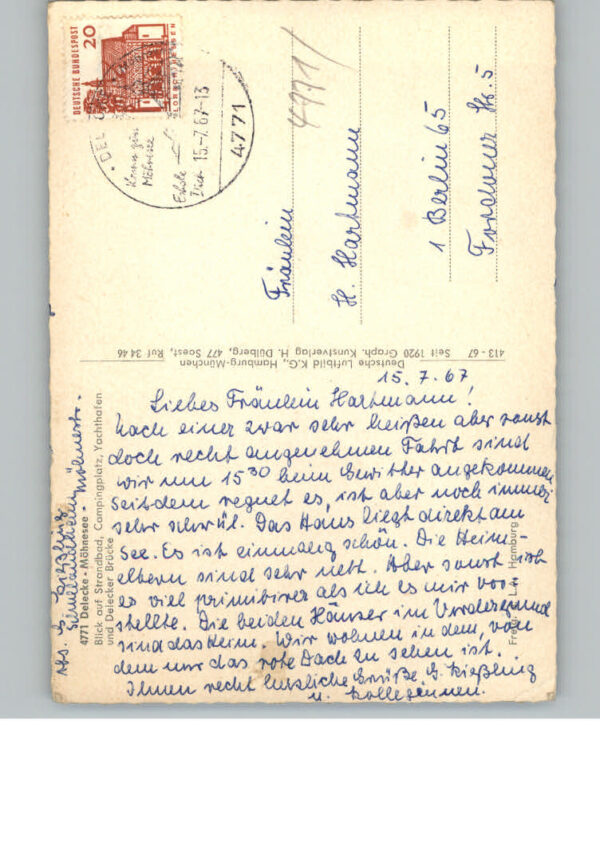 DEUTSCHE BUNDESPOST
20
Möhnesee
Erhole
Dich
15.-7.67-13
4771
4771/
Fräulein
H. Hartmann
1 Berlin 65
Fordoner Str. 5
413 - 67 Seit 1920 Graph. Kunstverlag H. Dülberg, 477 Soest, Ruf 34 46
Deutsche Luftbild K.G., Hamburg-München
15.7.67
Liebes Fräulein Hartmann!
Nach einer zwar sehr heißen aber sonst
doch recht angenehmen Fahrt sind
wir um 15³⁰ beim Gewitter angekommen
seitdem regnet es, ist aber noch immer
sehr schwül. Das Haus liegt direkt am
See. Es ist einmalig schön. Die Heim-
eltern sind sehr nett. Aber sonst ist
es viel primitiver als ich es mir vor-
stellte. Die beiden Häuser im Vordergrund
sind das Heim. Wir wohnen in dem, von
dem nur das rote Dach zu sehen ist.
Ihnen recht herzliche Grüße G. Kießling
u. Kolleginnen.
Abs. G. Kießling
Schullandheim Möhnestr.
4771 Delecke - Möhnesee -
Blick auf Strandbad, Campingplatz, Yachthafen
und Delecker Brücke
Hamburg